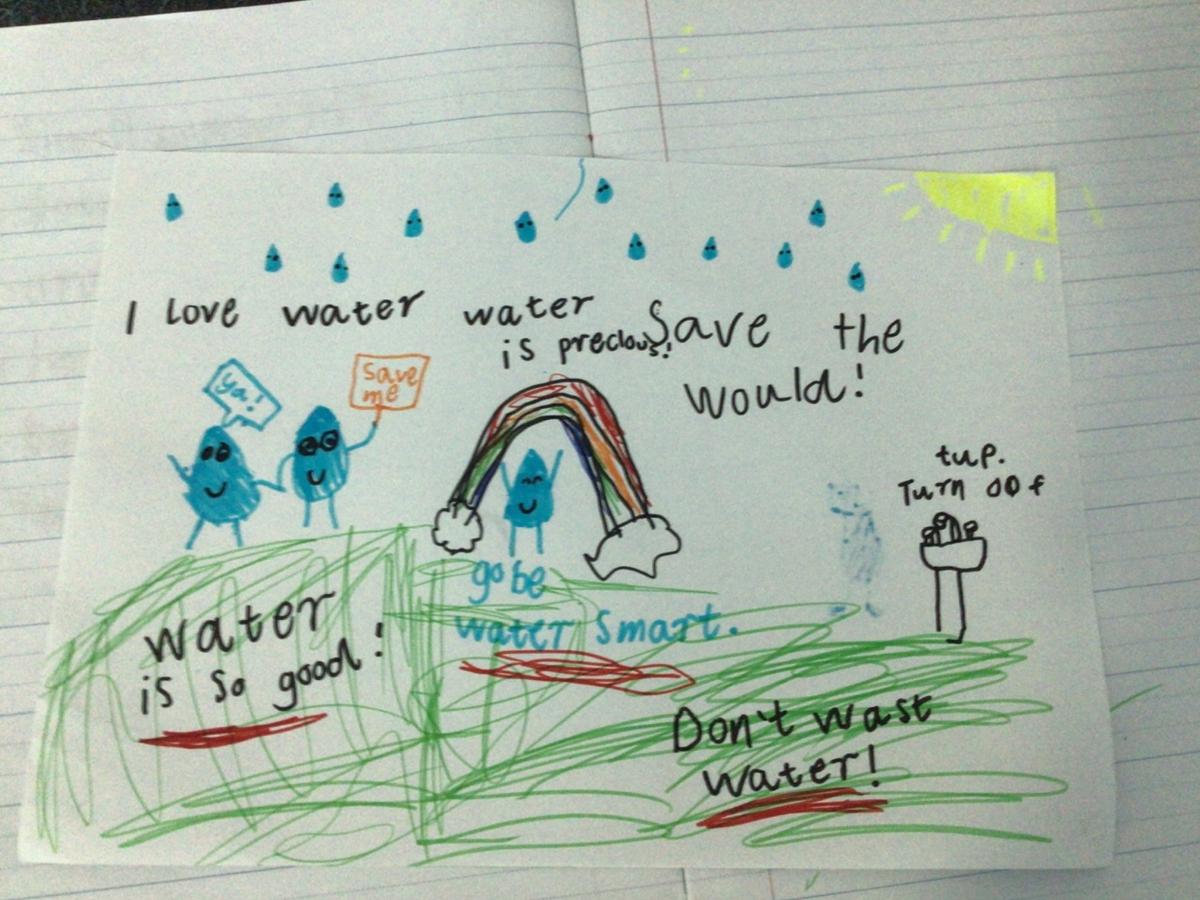 I love water
water
is precious!
Save the
would!
ya!
Save
me
tup.
Turn oof
go be
water smart.
water
is so good!
Don't wast
water!